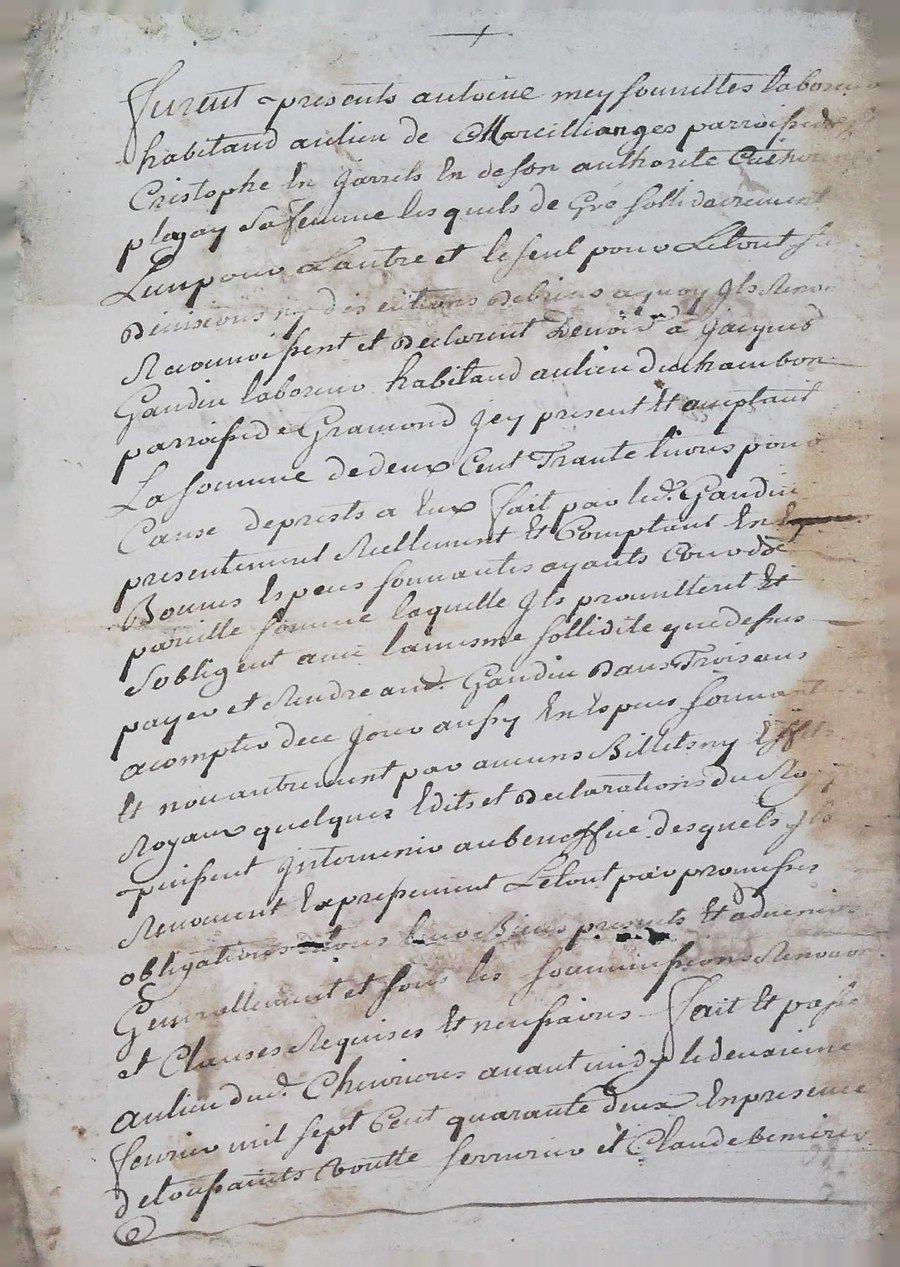 furent presents antoine meysonnettes laboureur
habitand au lieu de Marcillianges parroisse de St
Cristophe En Jarrets En de son authorite
plogay Sa femme lesquels de Gré sollidairement
L'un pour L'autre et le seul pour Le tout
Divisions ny discutions De biens a quoy Ils Renon
Reconnoissent et Declarent Devoir à Jacques
Gaudin laboreur habitand au lieu du chambon
parroisse de Gramond Icy present Et aceptant
La somme de deux Cent Trante livres pour
Cause de prests a Eux fait par led. Gaudin
presentement Reellement Et Comptant En
Bonnes Especes sonnantes ayants Cours De
pareille somme laquelle Ils promettent Et
S'obligent avec la mesme sollidite que dessus
payer et Rendre aud. Gaudin Dans Trois ans
a compter de ce jour aussy En Especes sonnant
Et non autrement par aucuns Billets ny Effets
Royaux quelques Edits et Declarations du Roy
puissent Intervenir au beneffice desquels Ils
Renoncent Expressement Le tout par promesses
obligations de tous leurs Biens presents Et advenirs
Generallement et sous les soummissions Renonon
et Clauses Requises Et necessaires fait Et passé
au lieu dud. Chevrieres avant midy le deuxieme
fevrier mil sept Cent quarante deux En presence
de toussaints voutte serrurier et Claude